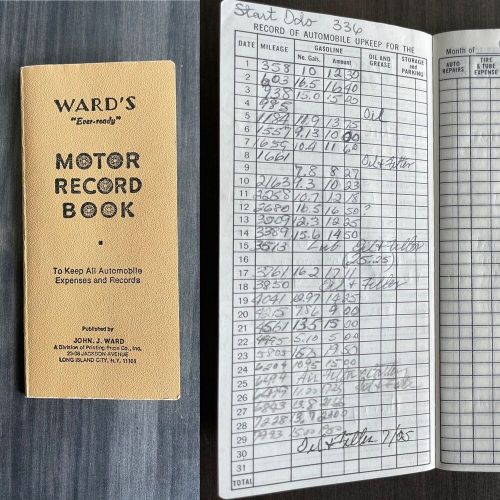 WARD'S
"Ever-ready"
MOTOR
RECORD
BOOK
To Keep All Automobile
Expenses and Records
Published by
JOHN. J. WARD
A Division of Printing Props Co., Inc.
23-08 JACKSON AVENUE
LONG ISLAND CITY, N.Y. 11101
Start Odo 336
RECORD OF AUTOMOBILE UPKEEP FOR THE
Month of
DATE MILEAGE GASOLINE No. Gals. Amount OIL AND GREASE STORAGE and PARKING AUTO REPAIRS TIRE & TUBE EXPENSE
1 358 10 12.30
2 603 16.5 16.40
3 938 15.0 15.00
4 985 Oil
5 1184 11.9 13.75
6 1557 9.13
7 1659 10.4
8 1661 Oil & Filter
9 7.8 8 27
10 2163 9.3 10 23
11 2358 10.7 12 18
12 2680 16.5 16 50 ?
13 3009 12.3 12 25
14 3389 15.6 14 50
15 3513 Lub Oil & Filter
16 (25.25)
17 3761 16.2 17 11
18 3850 Oil & Filter
19 4041 12.97 14 25
20 7.86 9 00
21 4561 13.5 15 00
22 5.10 5 00
23
24 10.95 15 00
25
26
27
28 7228
29 Oil & Filter 7/25
30
31
TOTAL